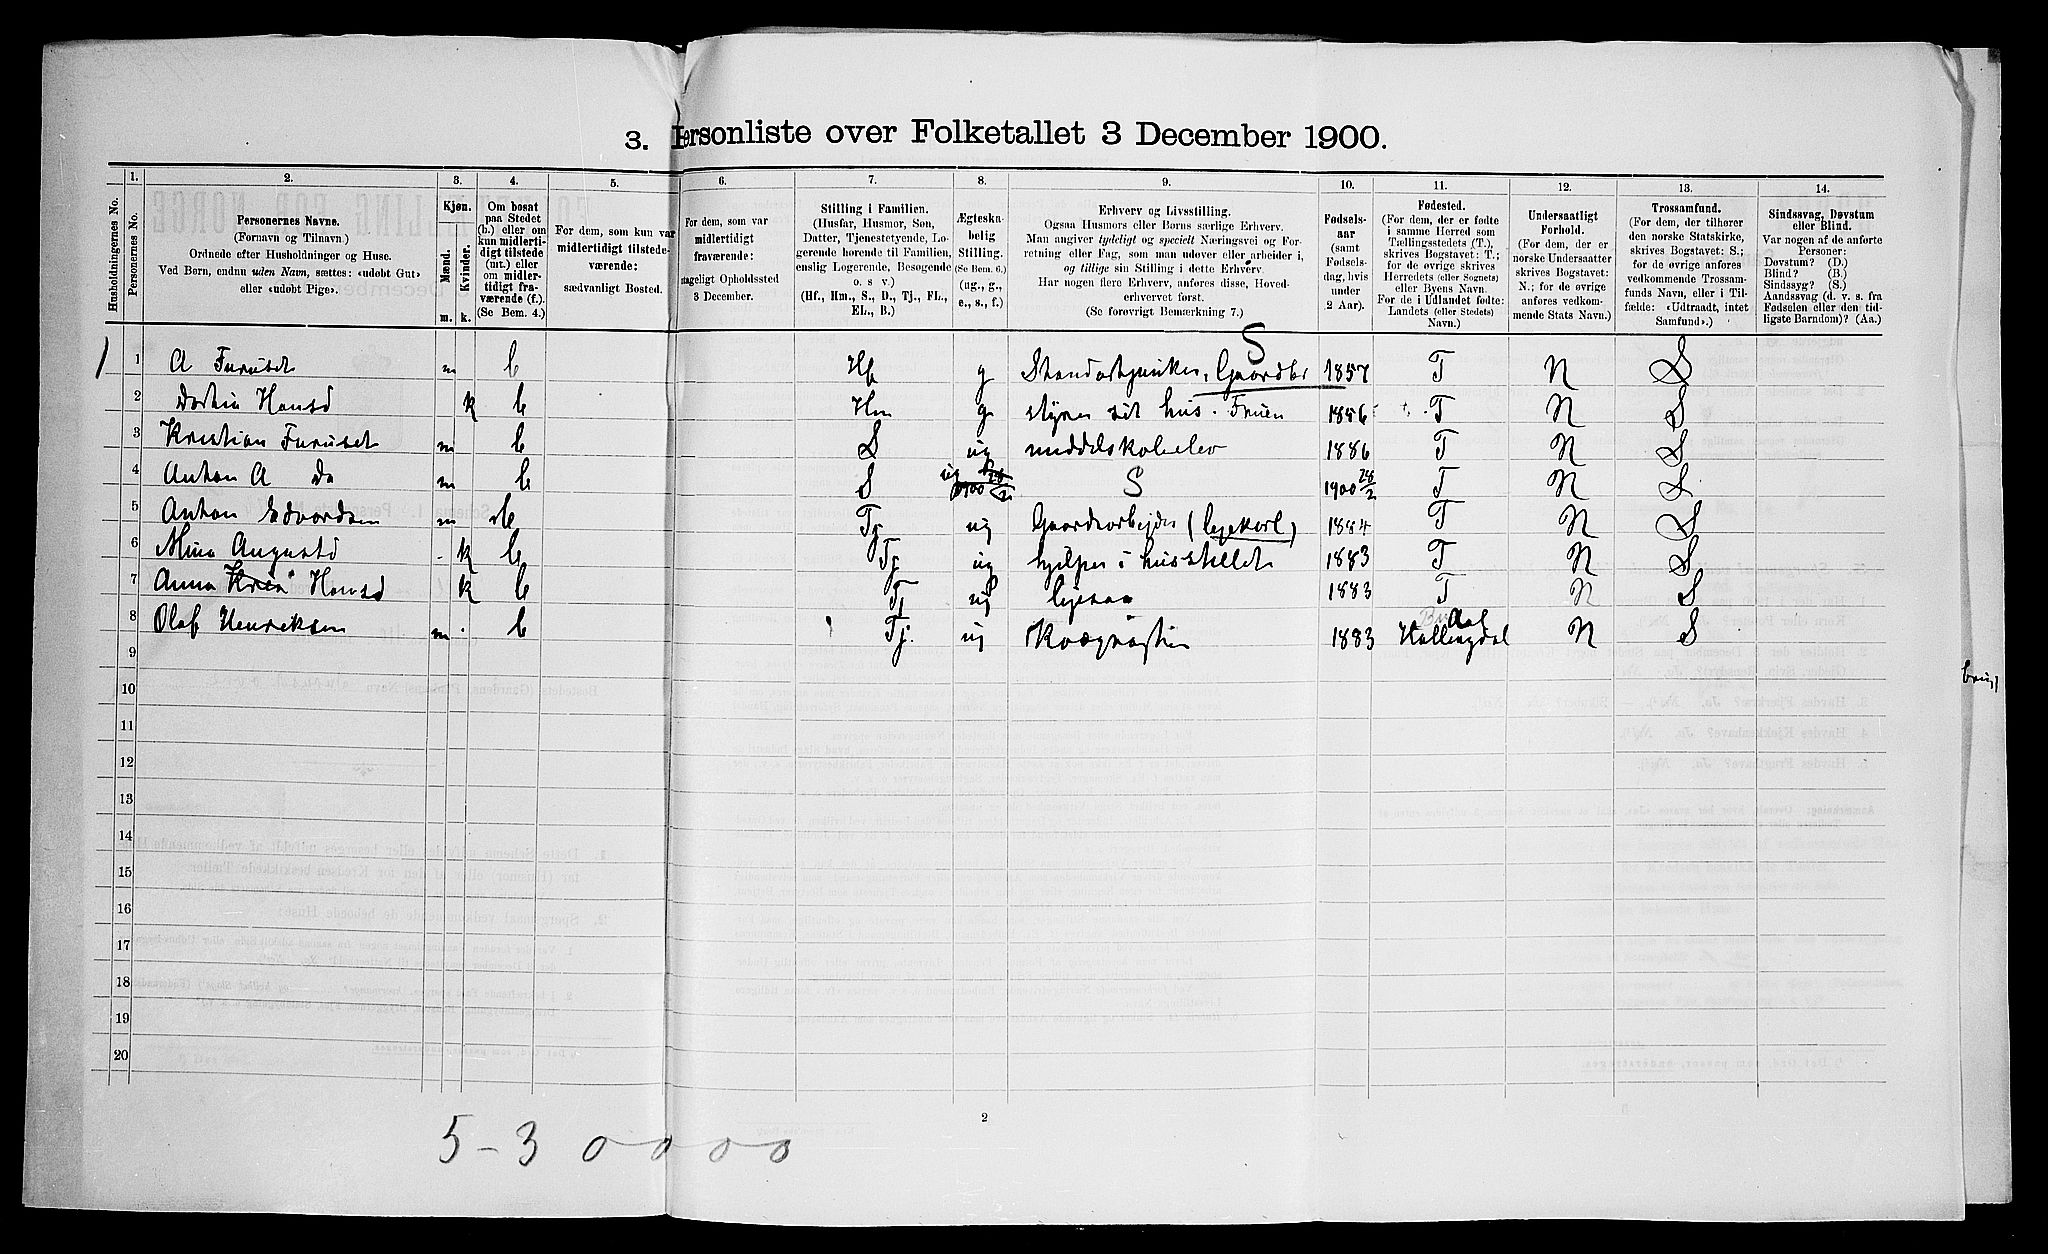 3. Personliste over Folketallet 3 December 1900.
1. 2. 3. 4. 5. 6. 7. 8. 9. 10. 11. 12. 13. 14.
Husholdningernes No.
Personernes No.
Personernes Navne.
(Fornavn og Tilnavn)
Ordnede efter Husholdninger og Huse.
Ved Børn, endnu uden Navn, sættes: «udøbt Gut»
eller «udøbt Pige».
Kjøn.
Mænd.
Kvinder.
m. k.
Om bosat
paa Stedet
(b.) eller om
kun midlerti-
digt tilstede
(mt.) eller
om midler-
tidigt fra-
værende (f.).
(Se Bem. 4.)
For dem, som kun var
midlertidigt tilstede-
værende:
sædvanligt Bosted.
For dem, som var
midlertidigt
fraværende:
antageligt Opholdssted
3 December.
Stilling i Familien.
(Husfar, Husmor, Søn,
Datter, Tjenestetyende, Lo-
gerende hørende til Familien,
enslig Logerende, Besøgende
o. s v.)
(Hf., Hm., S., D., Tj., FL.,
EL., B.)
Ægteska-
belig
Stilling.
(Se Bem. 6.)
(ug., g.,
e., s., f.)
Erhverv og Livsstilling.
Ogsaa Husmors eller Børns særlige Erhverv.
Man angiver tydeligt og specielt Næringsvei og For-
retning eller Fag, som man udøver eller arbeider i,
og tillige sin Stilling i dette Erhverv.
Har nogen flere Erhverv, anføres disse, Hoved-
erhvervet først.
(Se forøvrigt Bemærkning 7.)
Fødsels-
aar
(samt
Fødsels-
dag, hvis
under
2 Aar).
Fødested.
(For dem, der er fødte
i samme Herred som
Tællingsstedets (T.),
skrives Bogstavet: T.;
for de øvrige skrives
Herredets (eller Sognets)
eller Byens Navn.
For de i Udlandet fødte:
Landets (eller Stedets)
Navn.)
Undersaatligt
Forhold.
(For dem, der er
norske Undersaatter
skrives Bogstavet:
N.; for de øvrige
anføres vedkom-
mende Stats Navn.)
Trossamfund.
(For dem, der tilhører
den norske Statskirke,
skrives Bogstavet: S.;
for de øvrige anføres
vedkommende Trossam-
funds Navn, eller i Til-
fælde: «Udtraadt, intet
Samfund».)
Sindssvag, Døvstum
eller Blind.
Var nogen af de anførte
Personer:
Døvstum? (D.)
Blind? (B.)
Sindssyg? (S.)
Aandssvag (d. v. s. fra
Fødselen eller den tid-
ligste Barndom)? (Aa.)
S
1 1 A Furuset m b Hf g Gaardbr 1857 T N S
2 Hansd k b Hm g styrer sit hus. Fruen 1856 T N S
3 Kristian Furuset m b S ug middelskoleelev 1886 T N S
4 Anton A Do m b S ug S 1900 28/2 T N S
5 Anton Edvardsen m b Tj ug Gaardsarbejder (legekarl) 1884 T N S
6 Mina Augustd k b Tj ug hjelper i husstellet 1883 T N S
7 Anna Hansd k b Tj ug ligesaa 1883 T N S
8 Olaf Henriksen m b Tj ug Kvægrøgter 1883 Aal Hallingdal N S
9
10
11
12
13
14
15
16
17
18
19
20
2
5 - 3 0 0 0 0